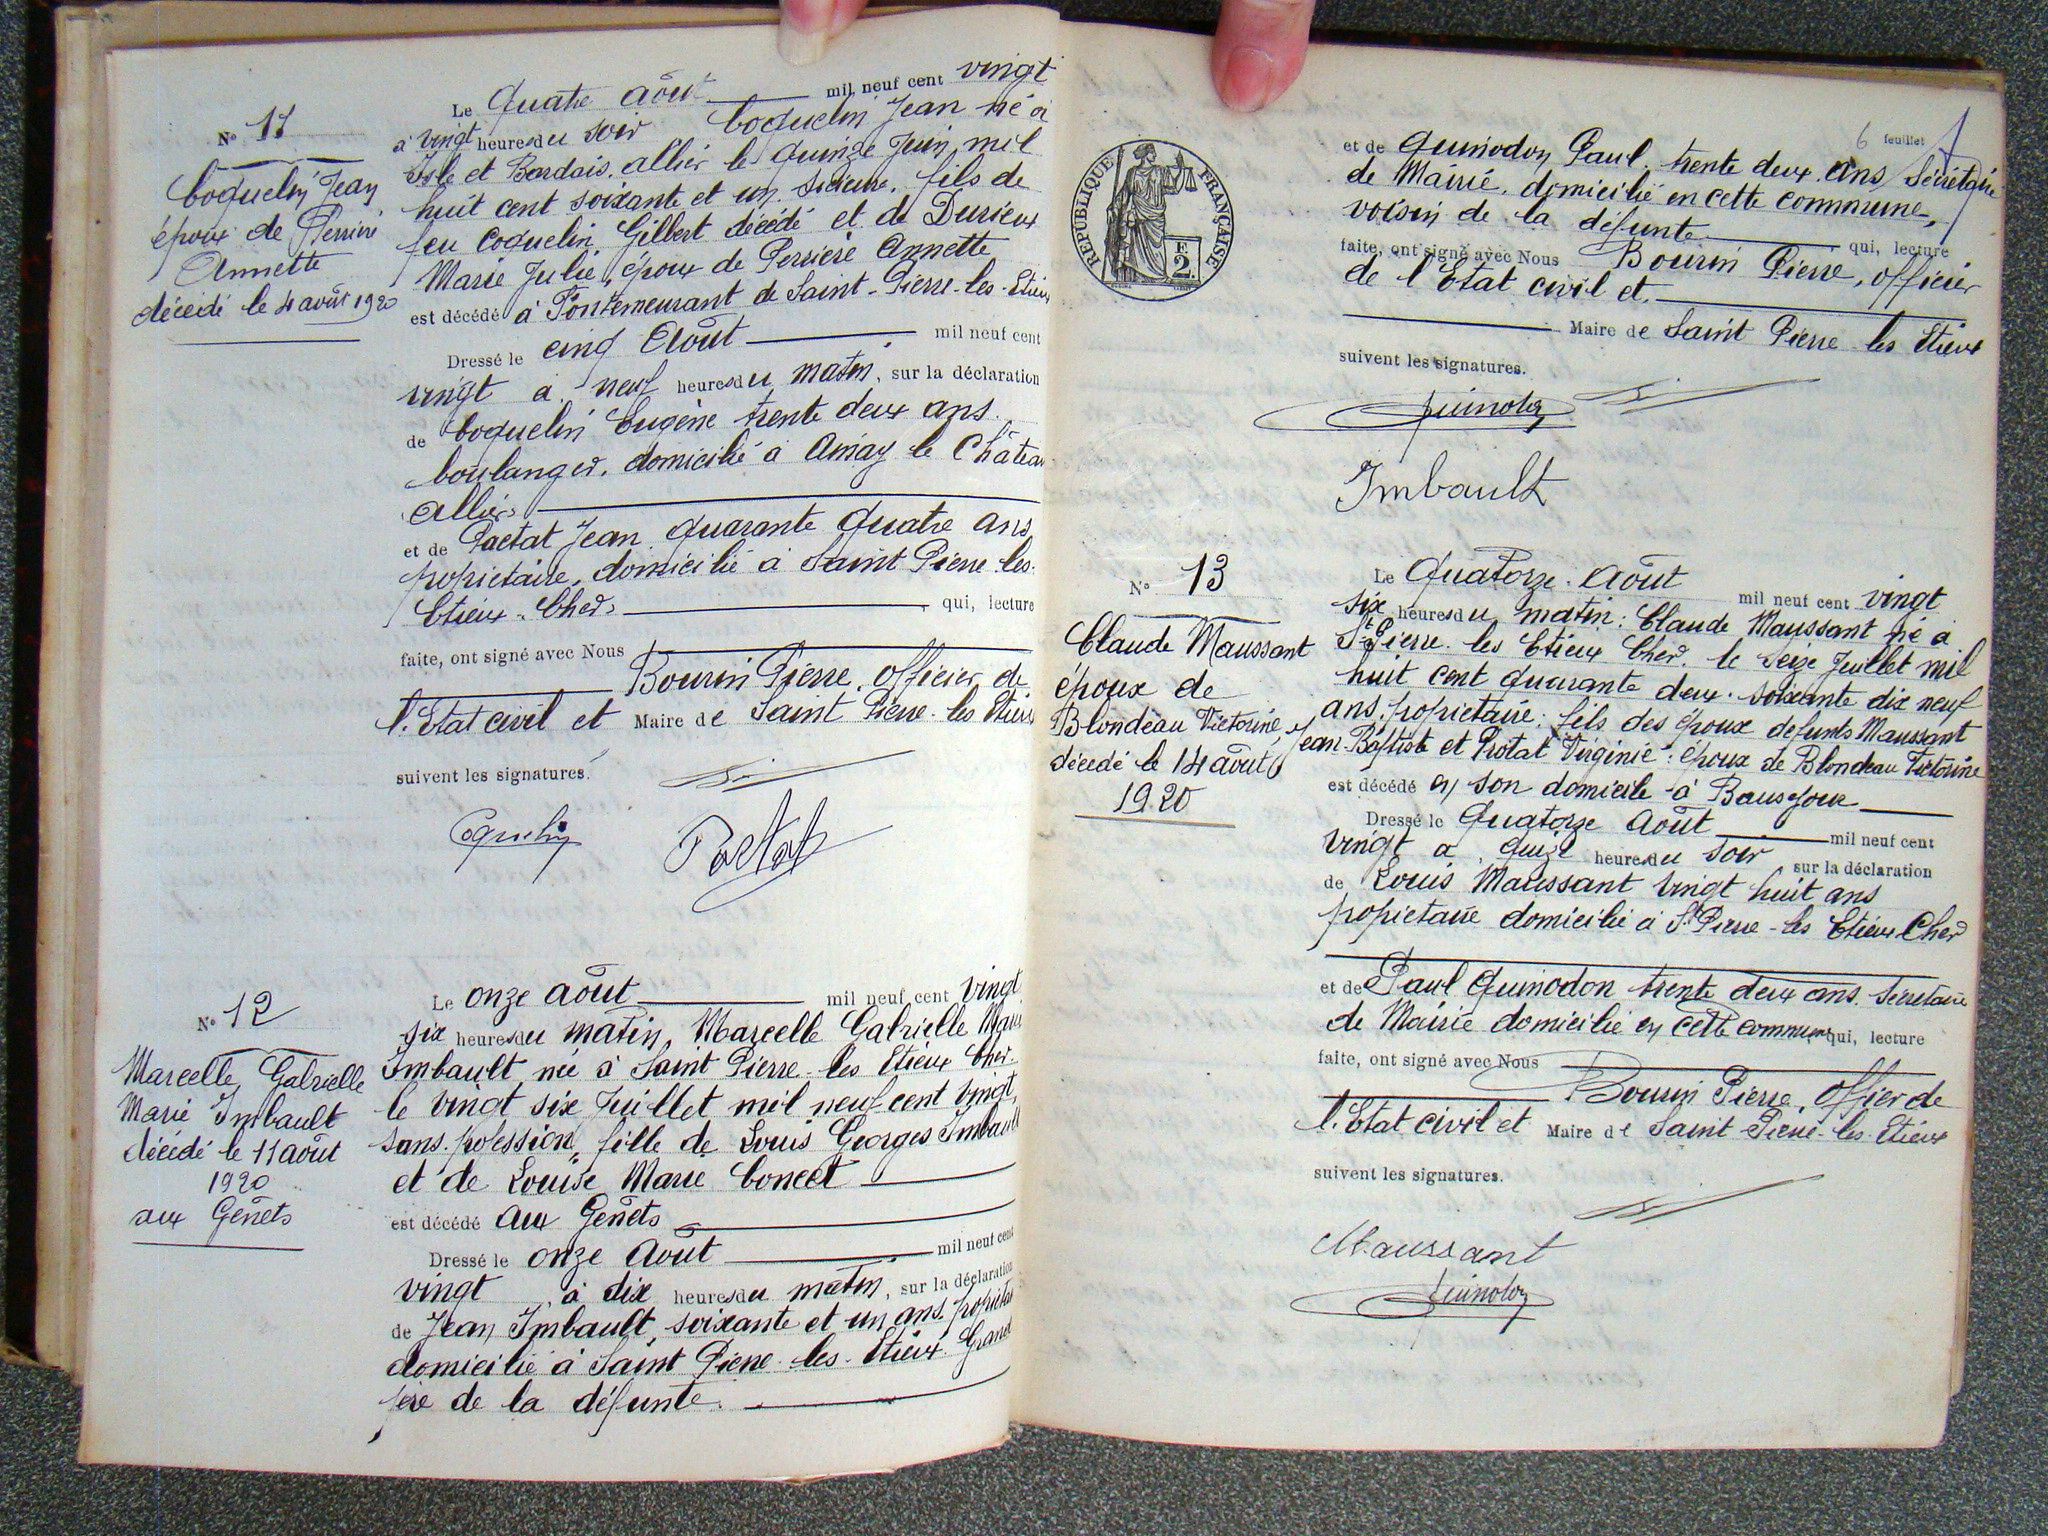 N° 11
Coquelin Jean
époux de Perriere
Annette
décédé le 4 août 1920
Le quatre août mil neuf cent vingt
à vingt heures du soir Coquelin Jean né à
Isle et Bardais. Allier le quinze Juin mil
huit cent soixante et un. fils de
feu Coquelin Gilbert décédé et de Durieux
Marie Julie, époux de Perriere Annette
est décédé à Fontemeurant de Saint-Pierre-les-Etieux
Dressé le cinq Août mil neuf cent
vingt à neuf heures du matin, sur la déclaration
de Coquelin Eugène trente deux ans.
boulanger. domicilié à Ainay le Château
Allier.
et de Pactat Jean quarante quatre ans
propietaire, domicilié à Saint Pierre-les-
Etieux. Cher. qui, lecture
faite, ont signé avec Nous
Bourin Pierre. officier de
l'Etat civil et Maire de Saint Pierre-les Etieux
suivent les signatures.
Coquelin Pactat
N° 12
Marcelle Gabrielle
Marie Imbault
décédé le 11 août
1920
aux Genêts
Le onze août mil neuf cent vingt
six heures du matin, Marcelle Gabrielle Marie
Imbault, née à Saint Pierre-les Etieux Cher.
le vingt six Juillet mil neuf cent vingt,
sans profession, fille de Louis Georges Imbault
et de Louise Marie Concet
est décédé aux Genêts
Dressé le onze Août mil neuf cent
vingt, à dix heures du matin, sur la déclaration
de Jean Imbault, soixante et un ans. propietaire
domicilié à Saint Pierre-les-Etieux. Grand
père de la défunte.
6 feuillet
RÉPUBLIQUE FRANÇAISE
E
2.
et de Quinodon Paul. trente deux ans Sécrétaire
de Mairie. domicilié en cette commune,
voisin de la défunte qui, lecture
faite, ont signé avec Nous Bourin Pierre, officier
de l'Etat civil et
Maire de Saint Pierre-les Etieux
suivent les signatures.
Quinodon
Imbault
N° 13
Claude Maussant
époux de
Blondeau Victorine
décédé le 14 août
1920
Le Quatorze. Août mil neuf cent vingt
six heures du matin: Claude Maussant né à
St Pierre-les Etieux Cher. le Seize Juillet mil
huit cent quarante deux. soixante dix neuf
ans. propietaire: fils des époux defunts Maussant
Jean-Baptiste et Protat Virginie: époux de Blondeau Victorine
est décédé en son domicile à Beausejour
Dressé le Quatorze Août mil neuf cent
vingt à quize heures du soir sur la déclaration
de Louis Maussant vingt huit ans
propietaire domicilié à St Pierre-les Etieux Cher
et de Paul Quinodon trente deux ans. Sécretaire
de Mairie domicilié en cette commune qui, lecture
faite, ont signé avec Nous
Bourin Pierre, Offier de
l'Etat civil et Maire de Saint-Pierre-les-Etieux
suivent les signatures.
Maussant
Quinodon